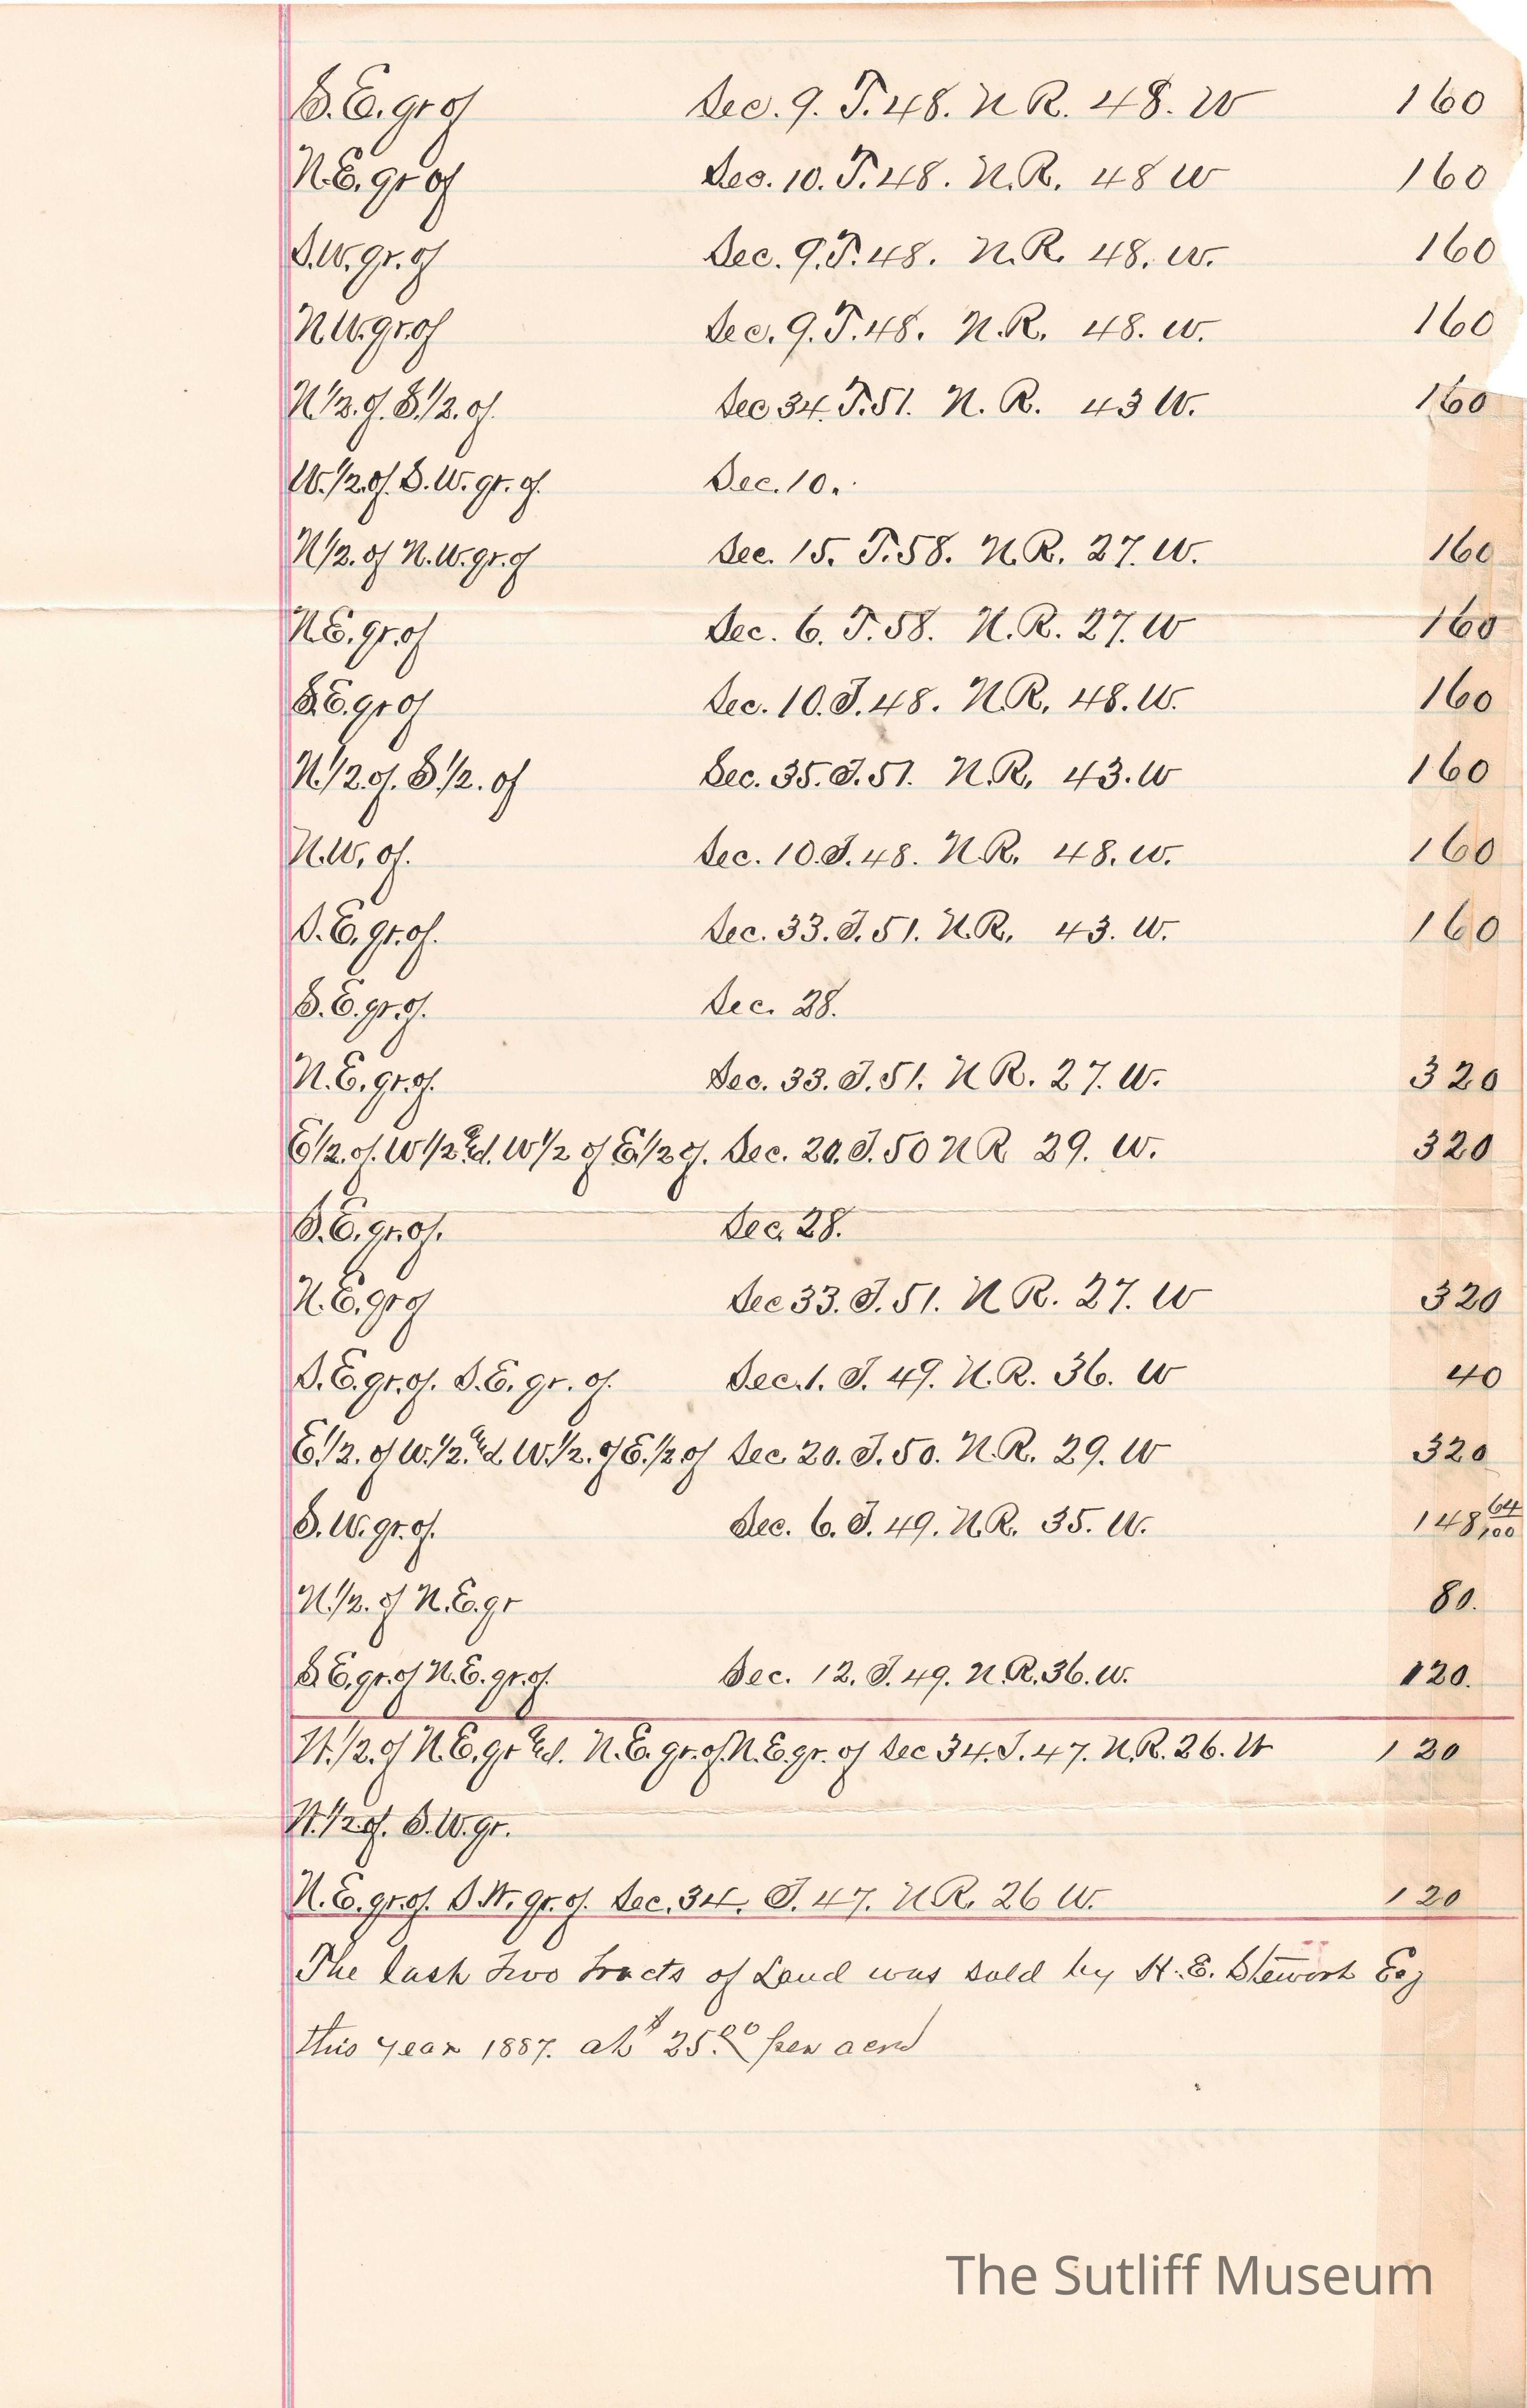 S.E. qr of Sec. 9. T. 48. N R. 48. W 160
N.E. qr of Sec. 10. T. 48. N.R. 48 W 160
S.W. qr. of Sec. 9. T. 48. N.R. 48. W. 160
N.W. qr. of Sec. 9. T. 48. N.R. 48. W. 160
N 1/2. of. S. 1/2. of. Sec 34. T. 51. N. R. 43 W. 160
W. 1/2. of. S. W. qr. of. Sec. 10.
N 1/2. of N. W. qr. of Sec. 15. T. 58. N.R. 27. W. 160
N.E. qr. of Sec. 6. T. 58. N.R. 27. W 160
S.E. qr of Sec. 10. T. 48. N.R. 48. W. 160
N. 1/2. of. S. 1/2. of Sec. 35. T. 51. N.R. 43. W 160
N.W, of. Sec. 10. T. 48. N.R. 48. W. 160
S. E. qr. of. Sec. 33. T. 51. N.R. 43. W. 160
S. E. qr. of. Sec. 28.
N. E. qr. of. Sec. 33. T. 51. N R. 27. W. 320
E 1/2. of. W 1/2 &d. W 1/2 of E. 1/2 of. Sec. 20. T. 50 N R 29. W. 320
S. E. qr. of. Sec. 28.
N. E. qr of Sec 33. T. 51. N R. 27. W 320
S. E. qr. of. S. E. qr. of. Sec. 1. T. 49. N.R. 36. W 40
E. 1/2. of W. 1/2. &d. W. 1/2. of E. 1/2 of Sec. 20. T. 50. N.R. 29. W 320
S. W. qr. of. Sec. 6. T. 49. N.R. 35. W. 148 64/100
N. 1/2. of N. E. qr 80.
S. E. qr. of N. E. qr. of. Sec. 12. T. 49. N.R. 36. W. 120.
W. 1/2. of N. E. qr &d. N. E. qr. of. N. E. qr. of Sec 34. T. 47. N.R. 26. W 120
W. 1/2 of. S. W. qr.
N. E. qr. of. S.W. qr. of. Sec. 34. T. 47. N R. 26 W. 120
The last two tracts of Land was sold by H. E. Stewart Esq
this year 1887. at $25.00 per acre
The Sutliff Museum